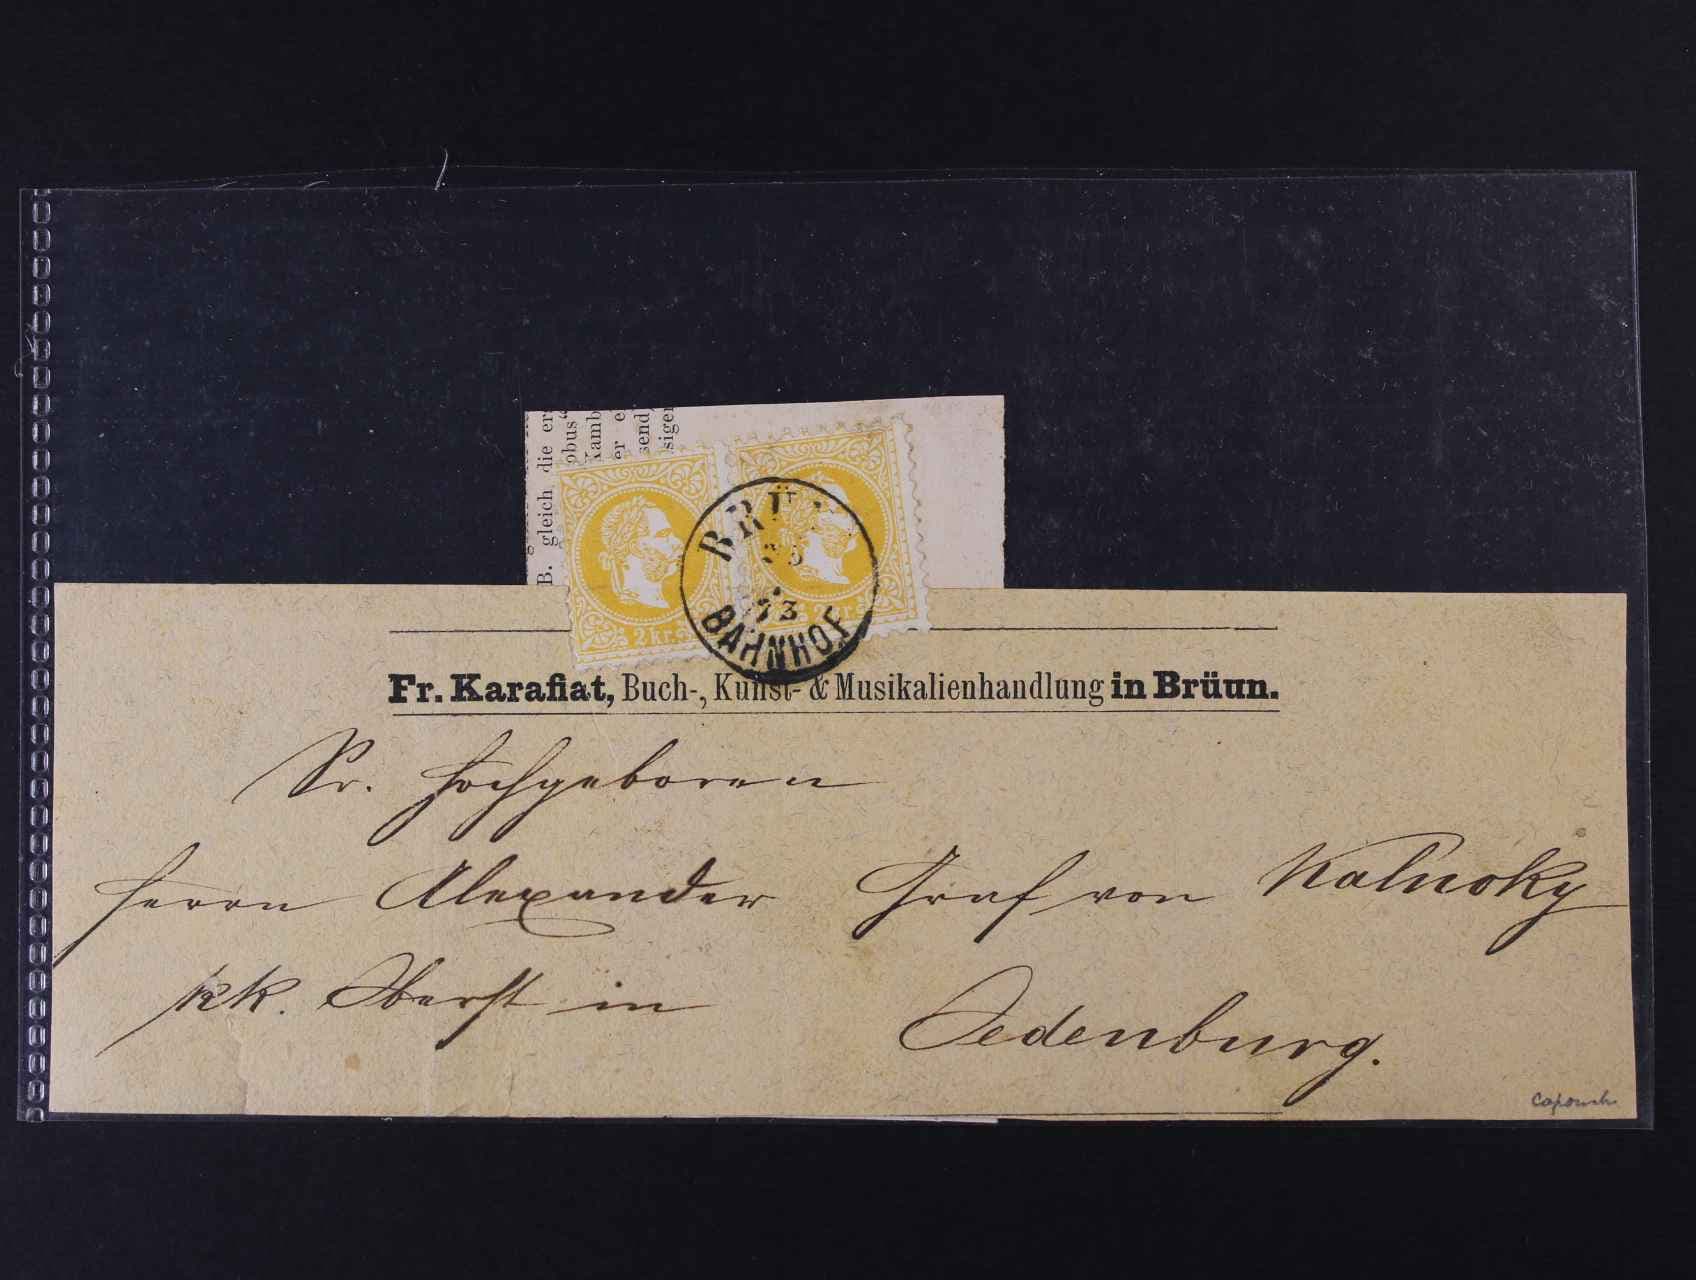 B. gleich die er
obus“
Kamb
er e
send
siger
2 kr.
2 kr.
BRÜ
73
BAHNHOF
Fr. Karafiat, Buch-, Kunst- & Musikalienhandlung in Brünn.
Sr. Hochgeboren
Herrn Alexander Graf von Kalnoky
kk. Oberst in
Oedenburg.